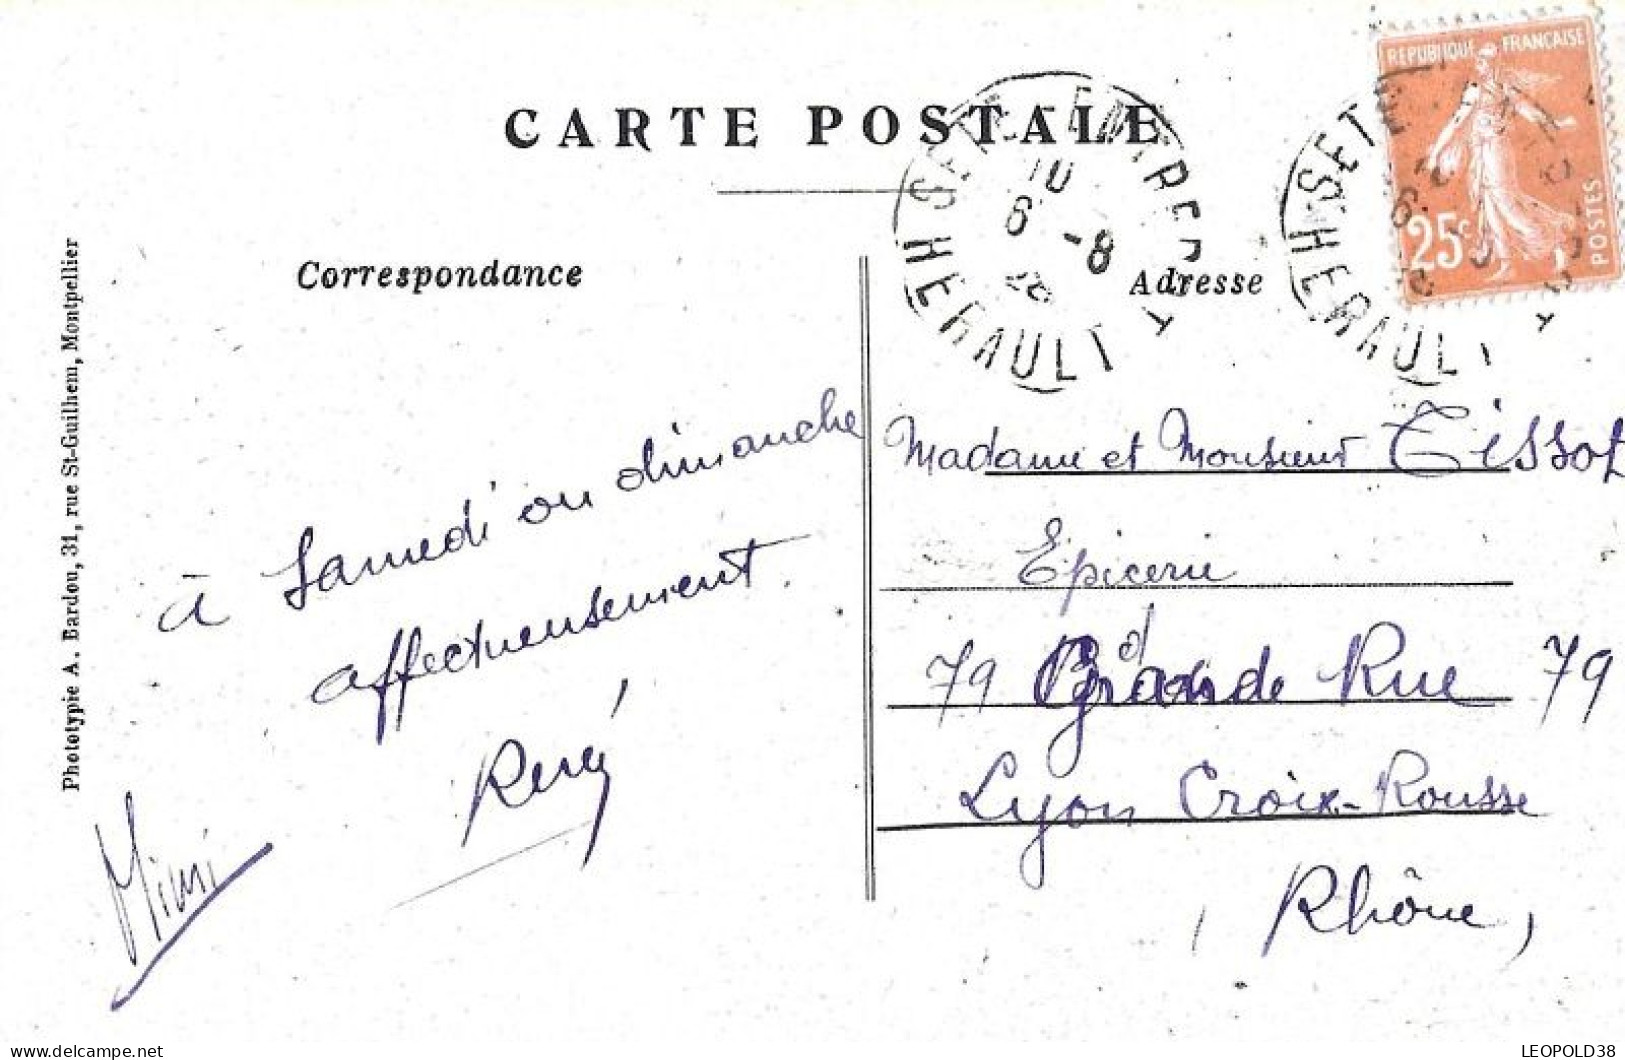 CARTE POSTALE
Correspondance
Adresse
REPUBLIQUE FRANÇAISE
25c
POSTES
SETE - ENTREPOT
10
6 - 8
HERAULT
SETE
HERAULT
à Samedi ou dimanche
affectueusement.
René
Mimi
Madame et Monsieur Tissot
Epicerie
79 Grande Rue 79
Lyon Croix-Rousse
Rhône
Phototypie A. Bardou, 31, rue St-Guilhem, Montpellier
delcampe.net
LEOPOLD38